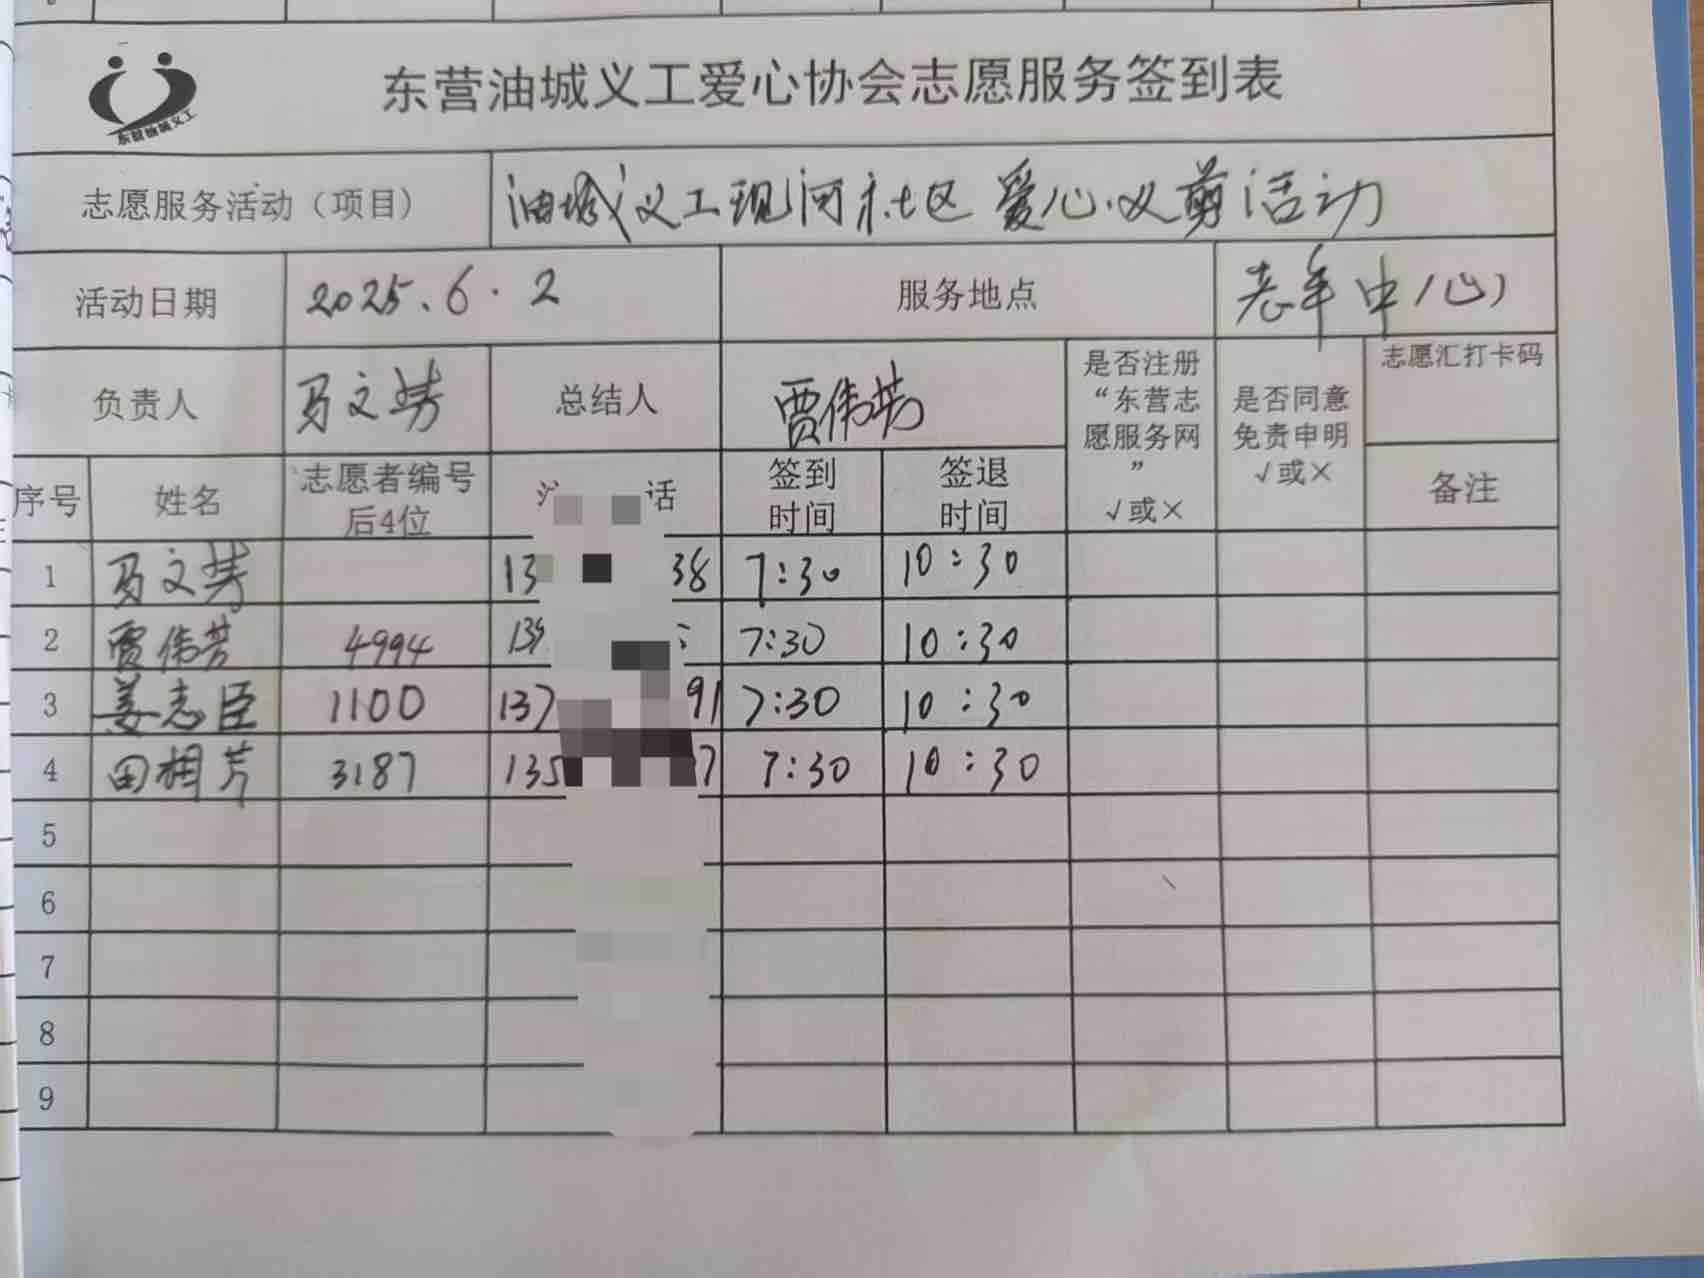 东营油城义工
东营油城义工爱心协会志愿服务签到表
志愿服务活动（项目） 油城义工现河社区爱心义剪活动
活动日期 2025.6.2 服务地点 老年中心
负责人 马文芳 总结人 贾伟芳 是否注册“东营志愿服务网” √或× 是否同意免责申明 √或× 志愿汇打卡码
序号 姓名 志愿者编号后4位 话 签到时间 签退时间 备注
1 马文芳 13 38 7:30 10:30
2 贾伟芳 4994 139 7:30 10:30
3 姜志臣 1100 137 91 7:30 10:30
4 田相芳 3187 135 7 7:30 10:30
5
6
7
8
9